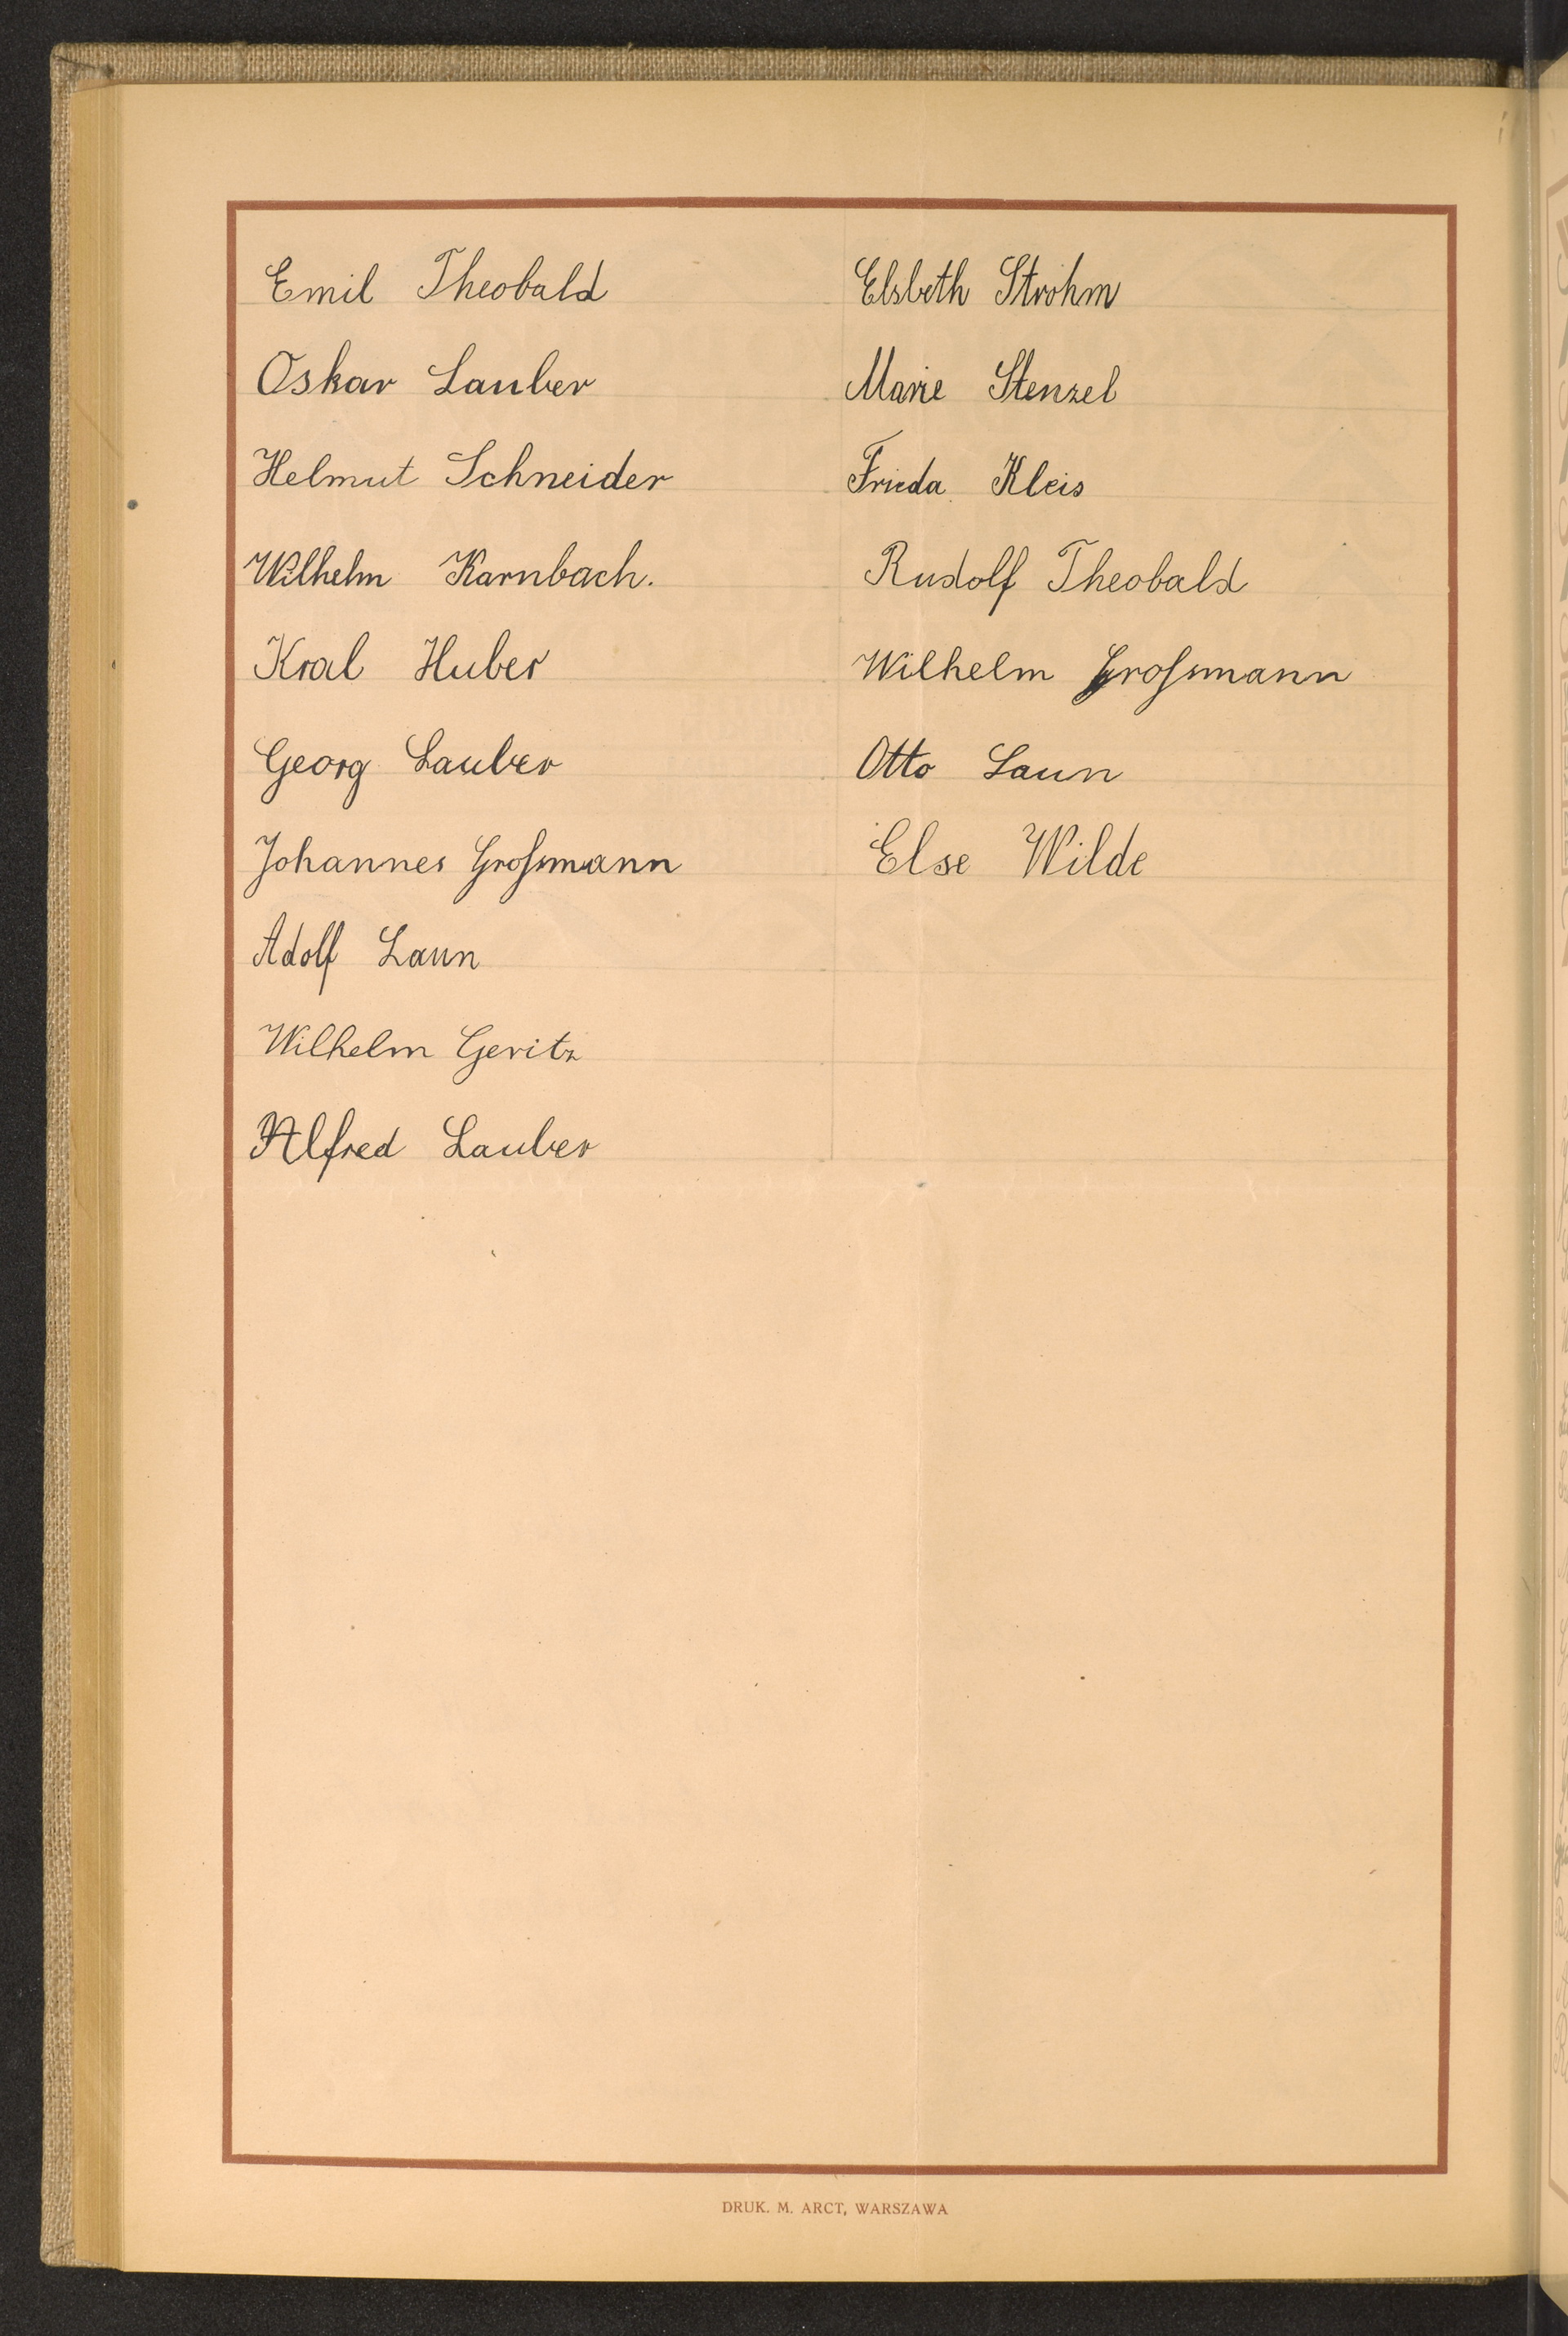 Emil Theobald
Oskar Lauber
Helmut Schneider
Wilhelm Karnbach.
Kral Huber
Georg Lauber
Johannes Großmann
Adolf Laun
Wilhelm Geritz
Alfred Lauber
Elsbeth Strohm
Marie Stenzel
Frieda Kleis
Rudolf Theobald
Wilhelm Großmann
Otto Laun
Else Wilde
DRUK. M. ARCT, WARSZAWA